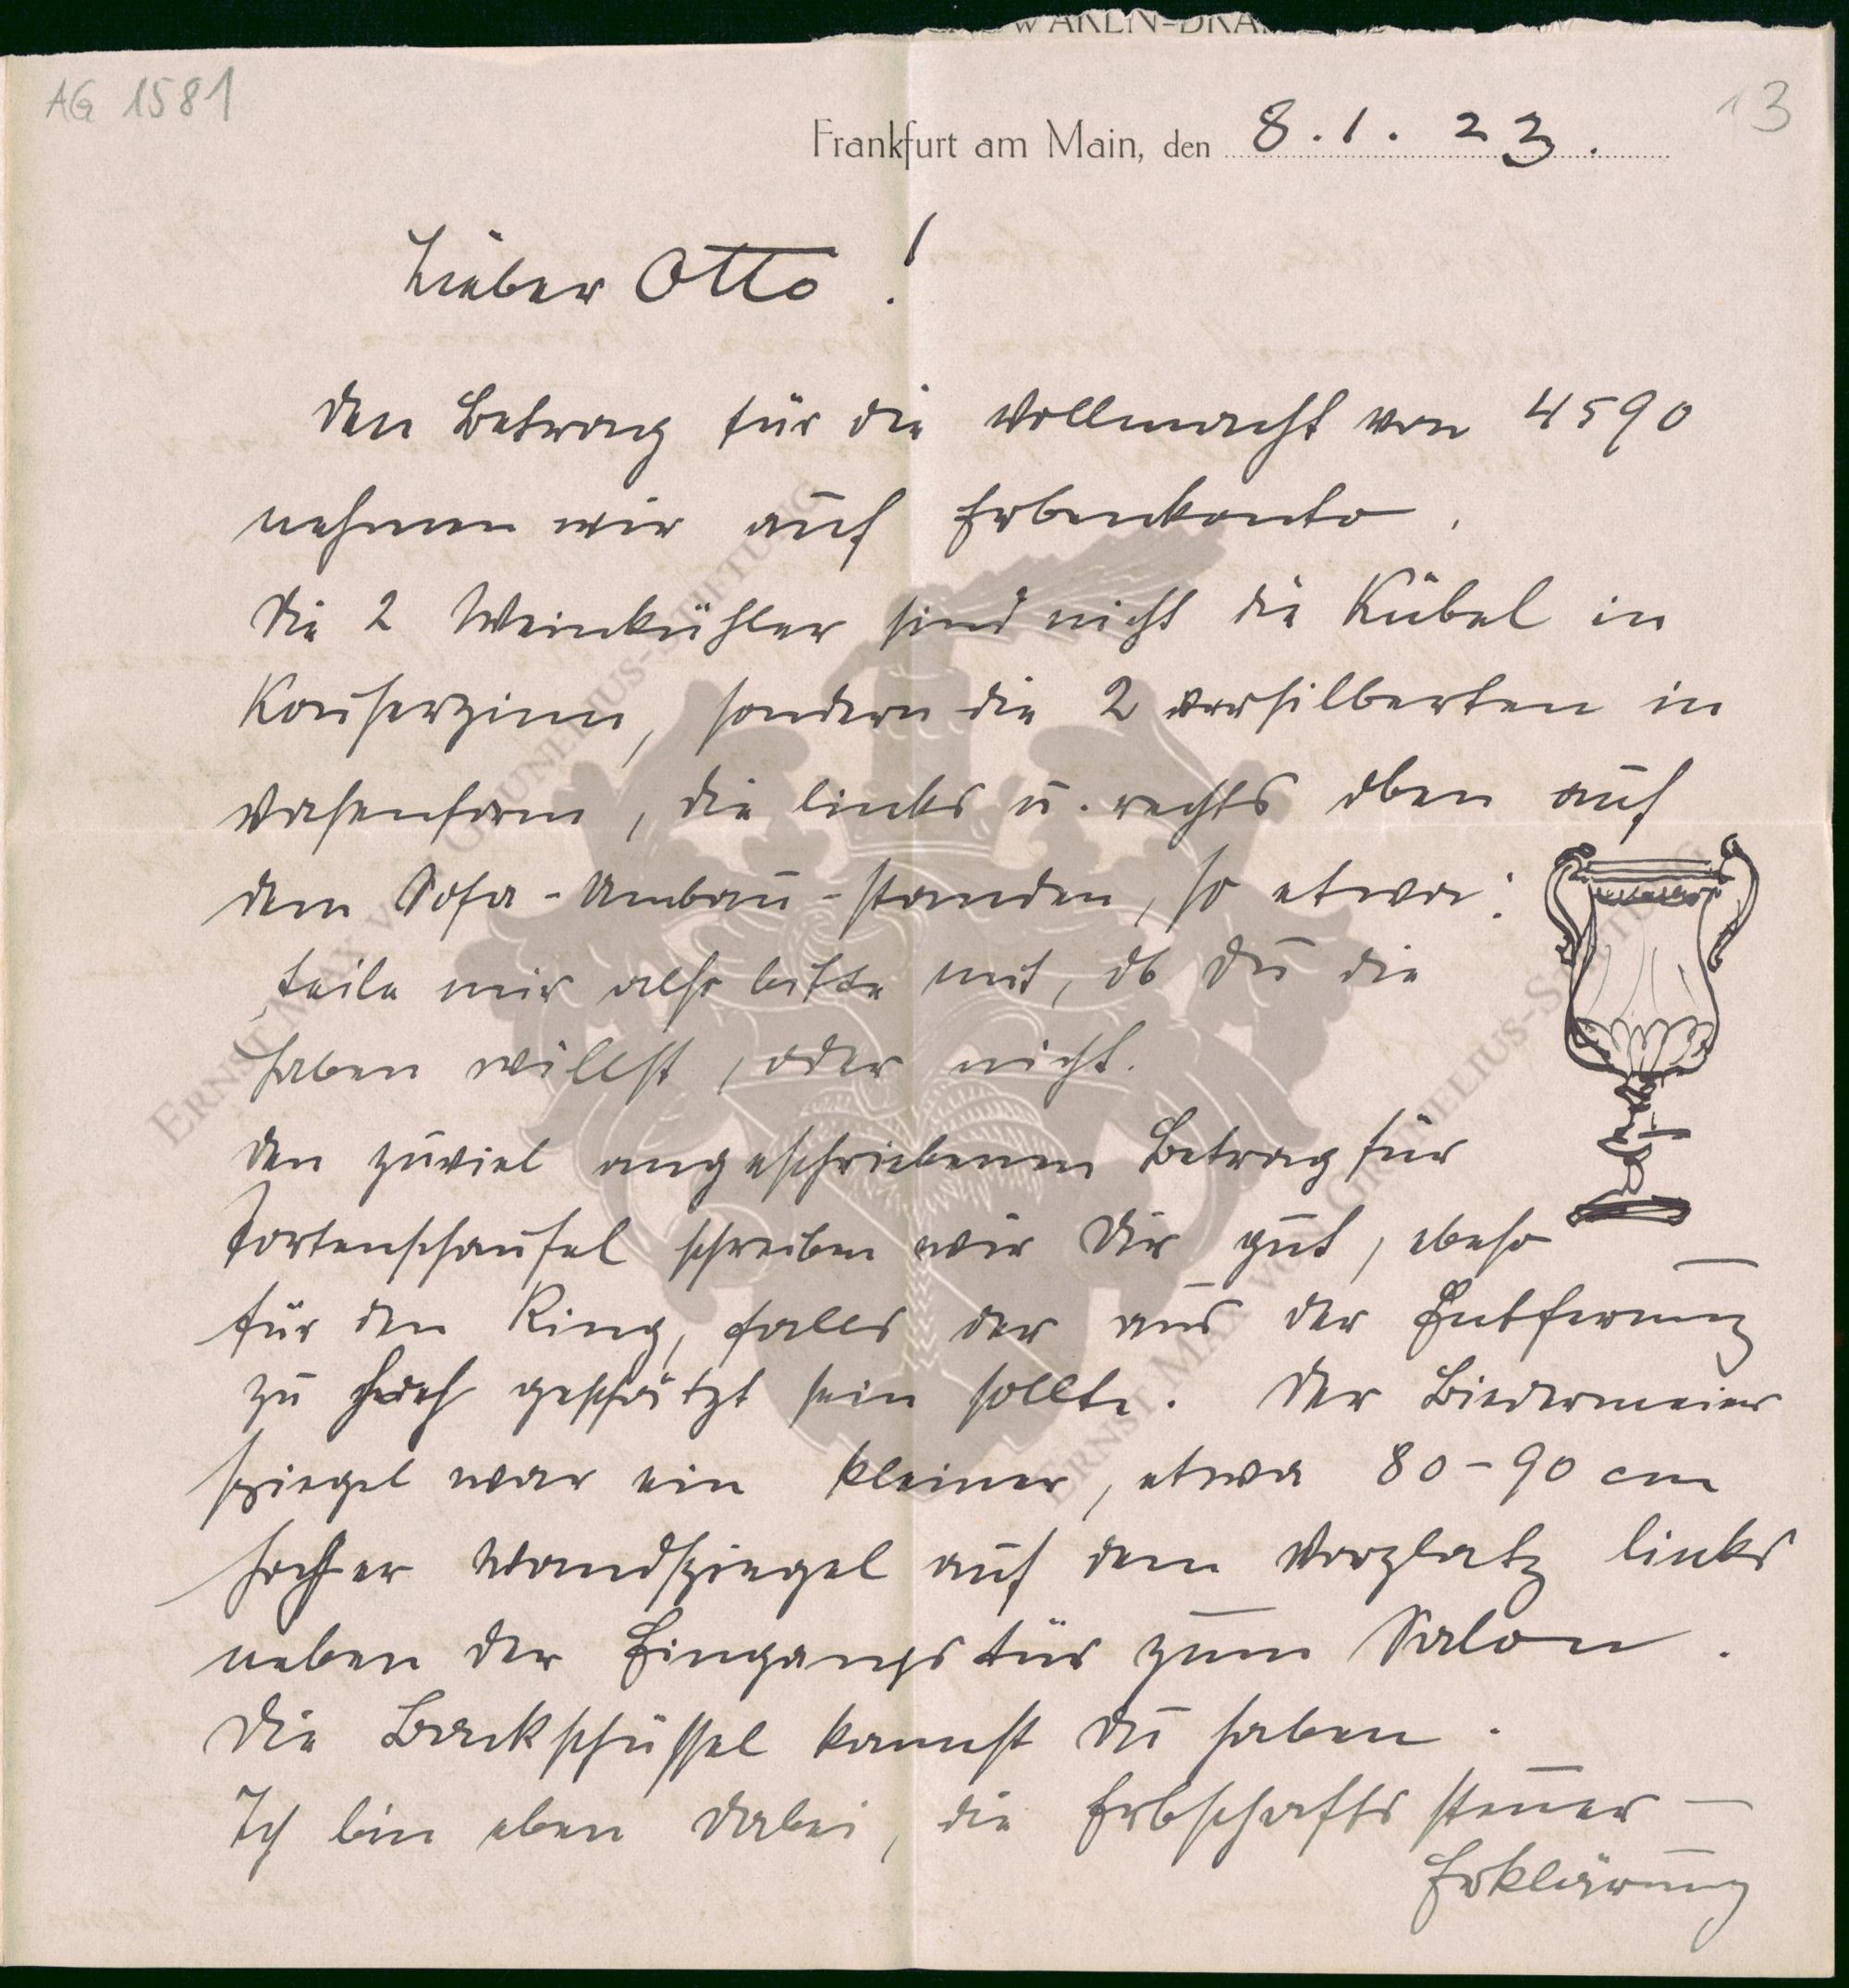 AG 1581
13
Frankfurt am Main, den 8.1.23.
Lieber Otto!
den Betrag für die Vollmacht von 4590
nehmen wir auf Erbenkonto.
Die 2 Weinkühler sind nicht die Kübel in
Kaiserzinn, sondern die 2 versilberten in
Vasenform, die links u. rechts oben auf
dem Sofa-Umbau-standen, so etwa:
teile mir also bitte mit, ob Du die
haben willst, oder nicht.
den zuviel angeschriebenen Betrag für
Tortenschaufel schreiben wir Dir gut, ebeso
für den Ring, falls der aus der Entfernung
zu hoch geschätzt sein sollte. Der Biedermeier
spiegel war ein kleiner, etwa 80-90 cm
hocher Wandspiegel auf dem Vorplatz links
neben der Eingangstür zum Salon.
Die Backschüssel kannst Du haben.
Ich bin eben dabei, die Erbschaftssteuer-
Erklärung
ERNST MAX VON GRUNELIUS-STIFTUNG
ERNST MAX VON GRUNELIUS-STIFTUNG